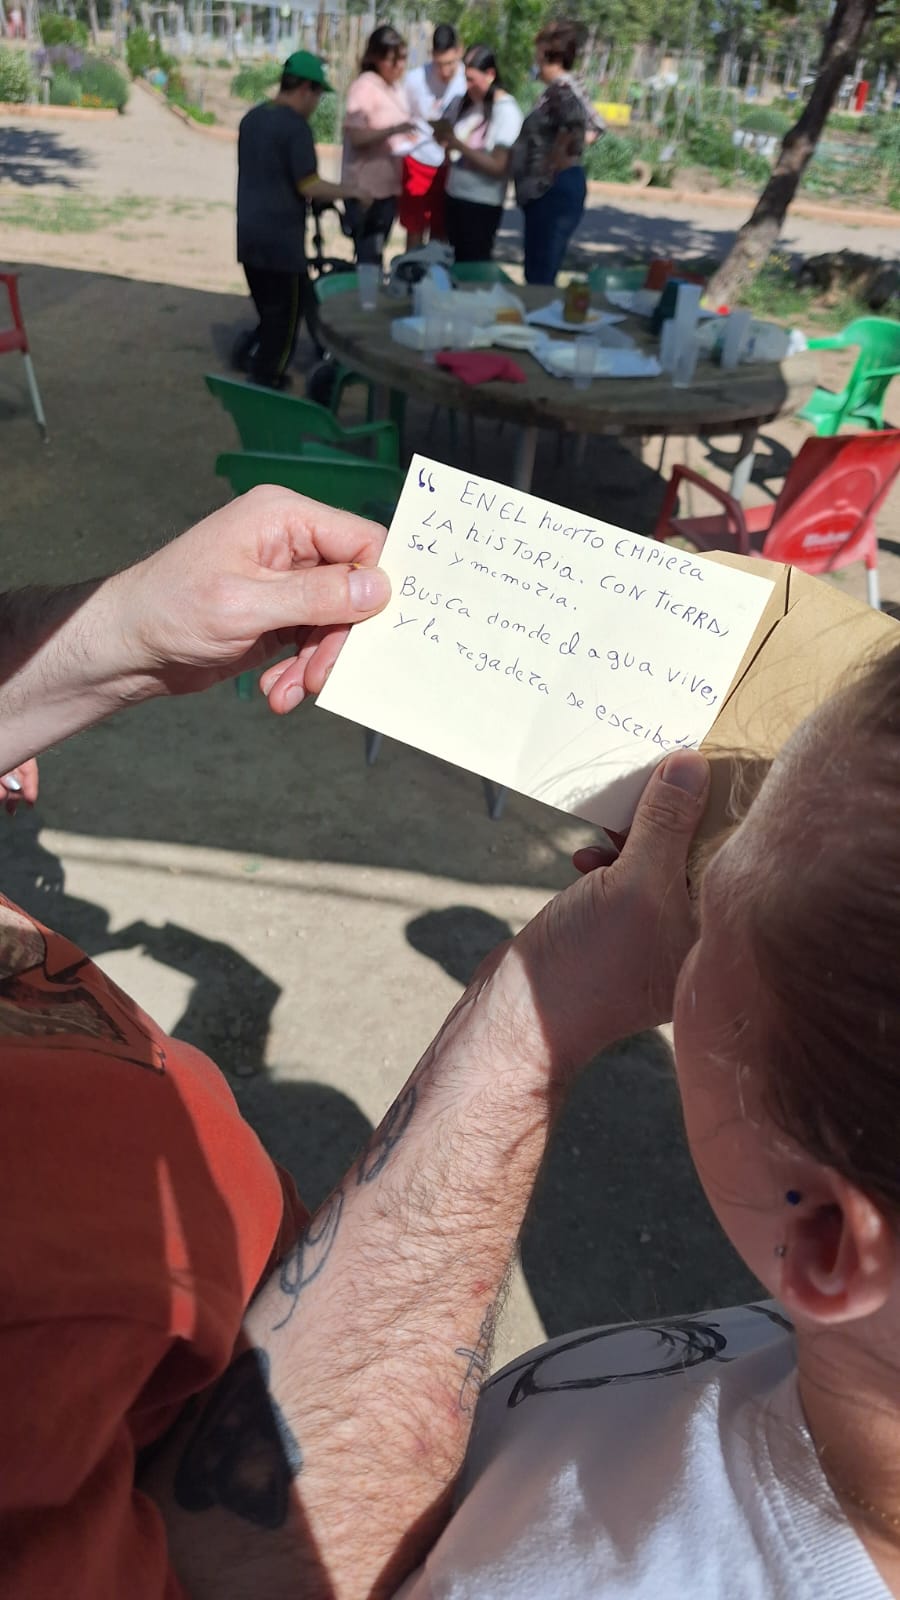 “ EN EL huerto EMPieza
LA hiSToRia. CON TiERRA,
SoL y memoria.
Busca donde el agua vive,
y la regadera se escribe”